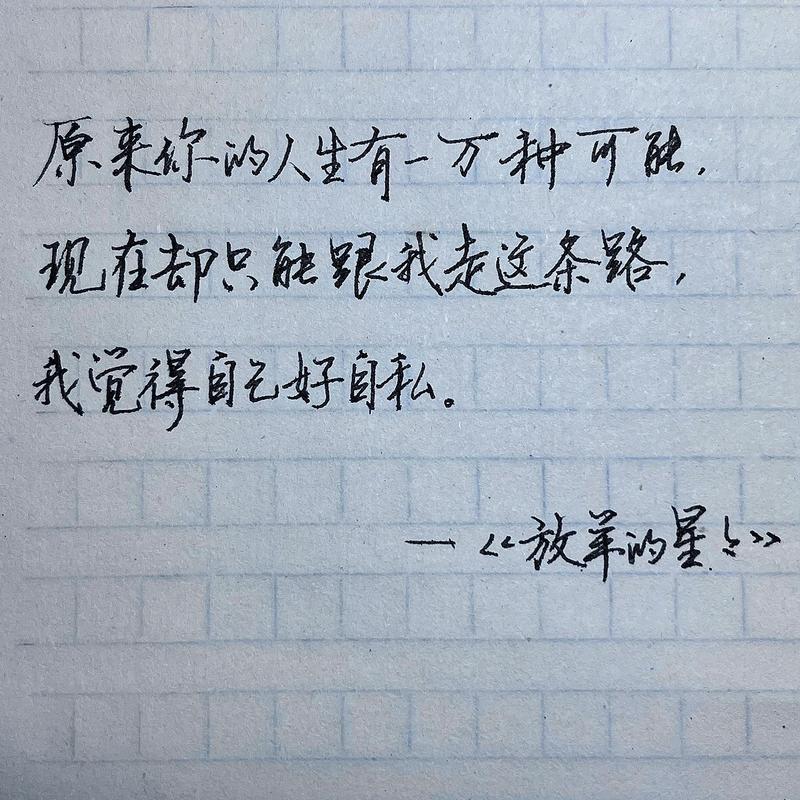 原来你的人生有一万种可能，
现在却只能跟我走这条路，
我觉得自己好自私。
—《放羊的星星》